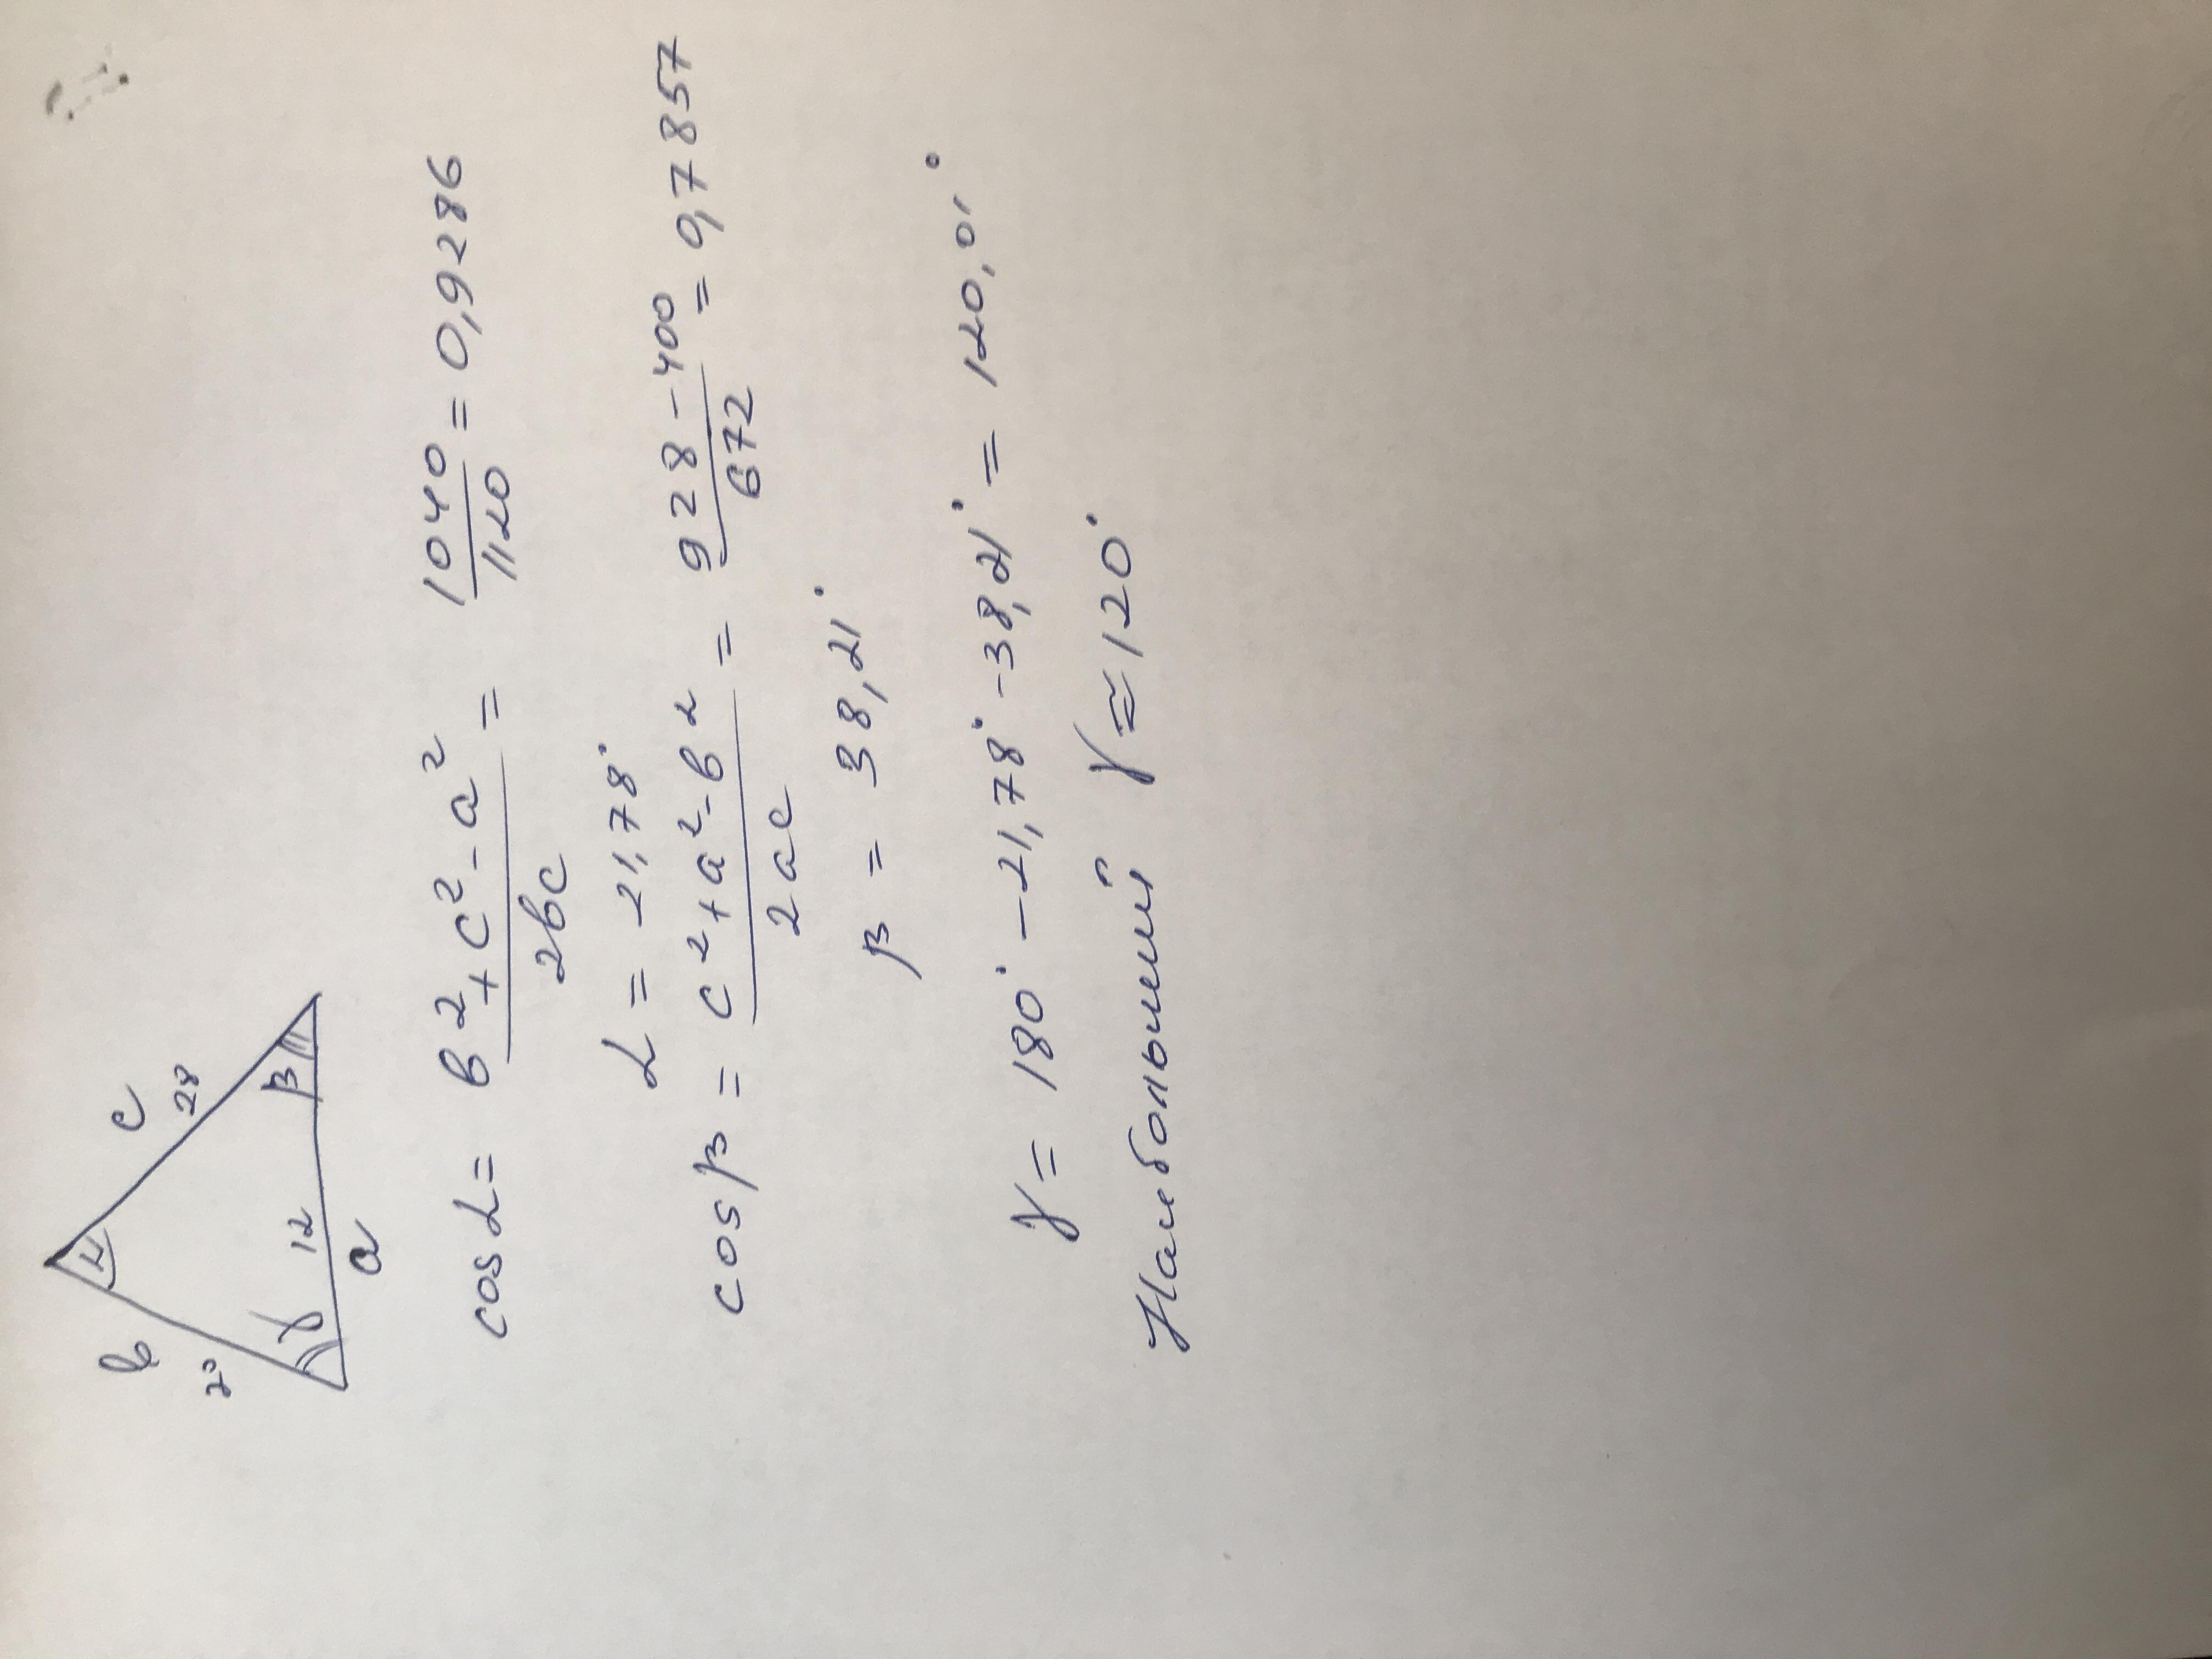 b c
20 28
α
γ 12 β
a
cos α = (b² + c² - a²) / 2bc = 1040 / 1120 = 0,9286
α = 21,78°
cos β = (c² + a² - b²) / 2ac = (928 - 400) / 672 = 0,7857
β = 38,21°
γ = 180° - 21,78° - 38,21° = 120,01°
Наибольший γ ≈ 120°